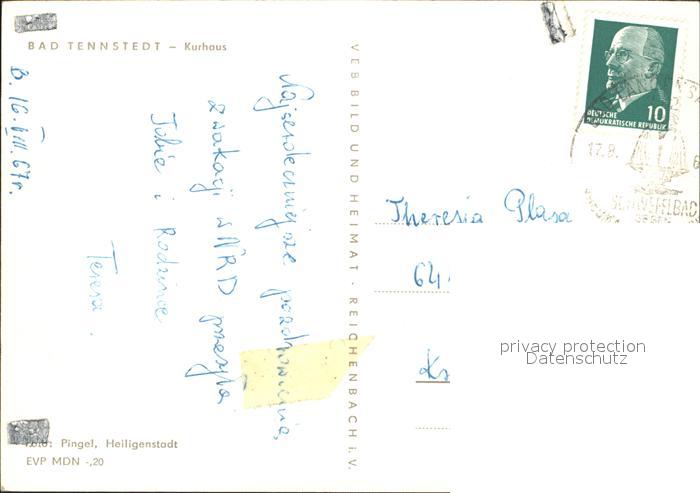 BAD TENNSTEDT – Kurhaus
B. 16.VIII.67r.
Najserdeczniejsze pozdrowienia,
z wakacji w NRD przesyła
Tobie i Rodzince
Teresa.
VEB BILD UND HEIMAT · REICHENBACH i. V.
10
DEUTSCHE
DEMOKRATISCHE REPUBLIK
17.8.
SCHWEFELBAD
GEGEN
Theresia Plasa
64
privacy protection
Datenschutz
Foto: Pingel, Heiligenstadt
EVP MDN -,20